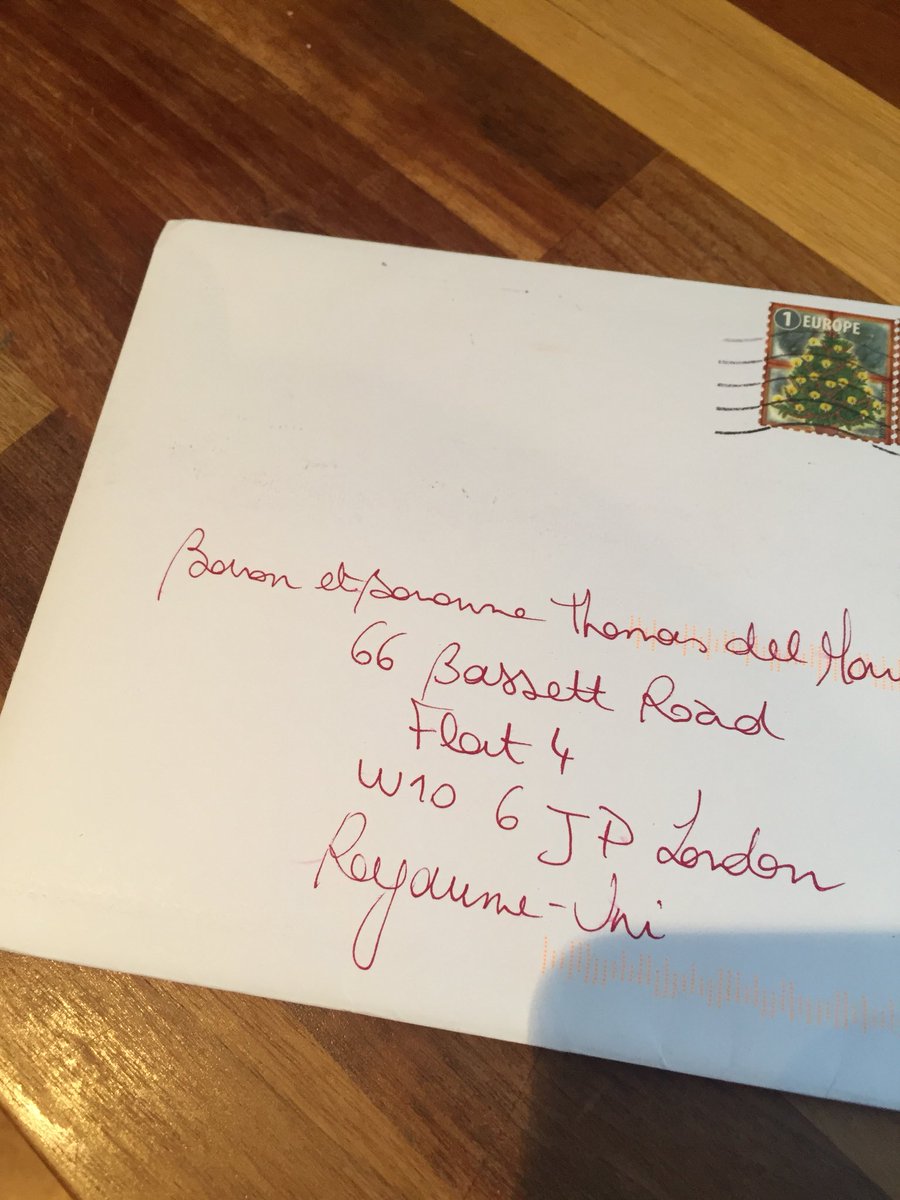 1 EUROPE
Baron et Baronne Thomas del Mar
66 Bassett Road
Flat 4
W10 6 JP London
Royaume-Uni